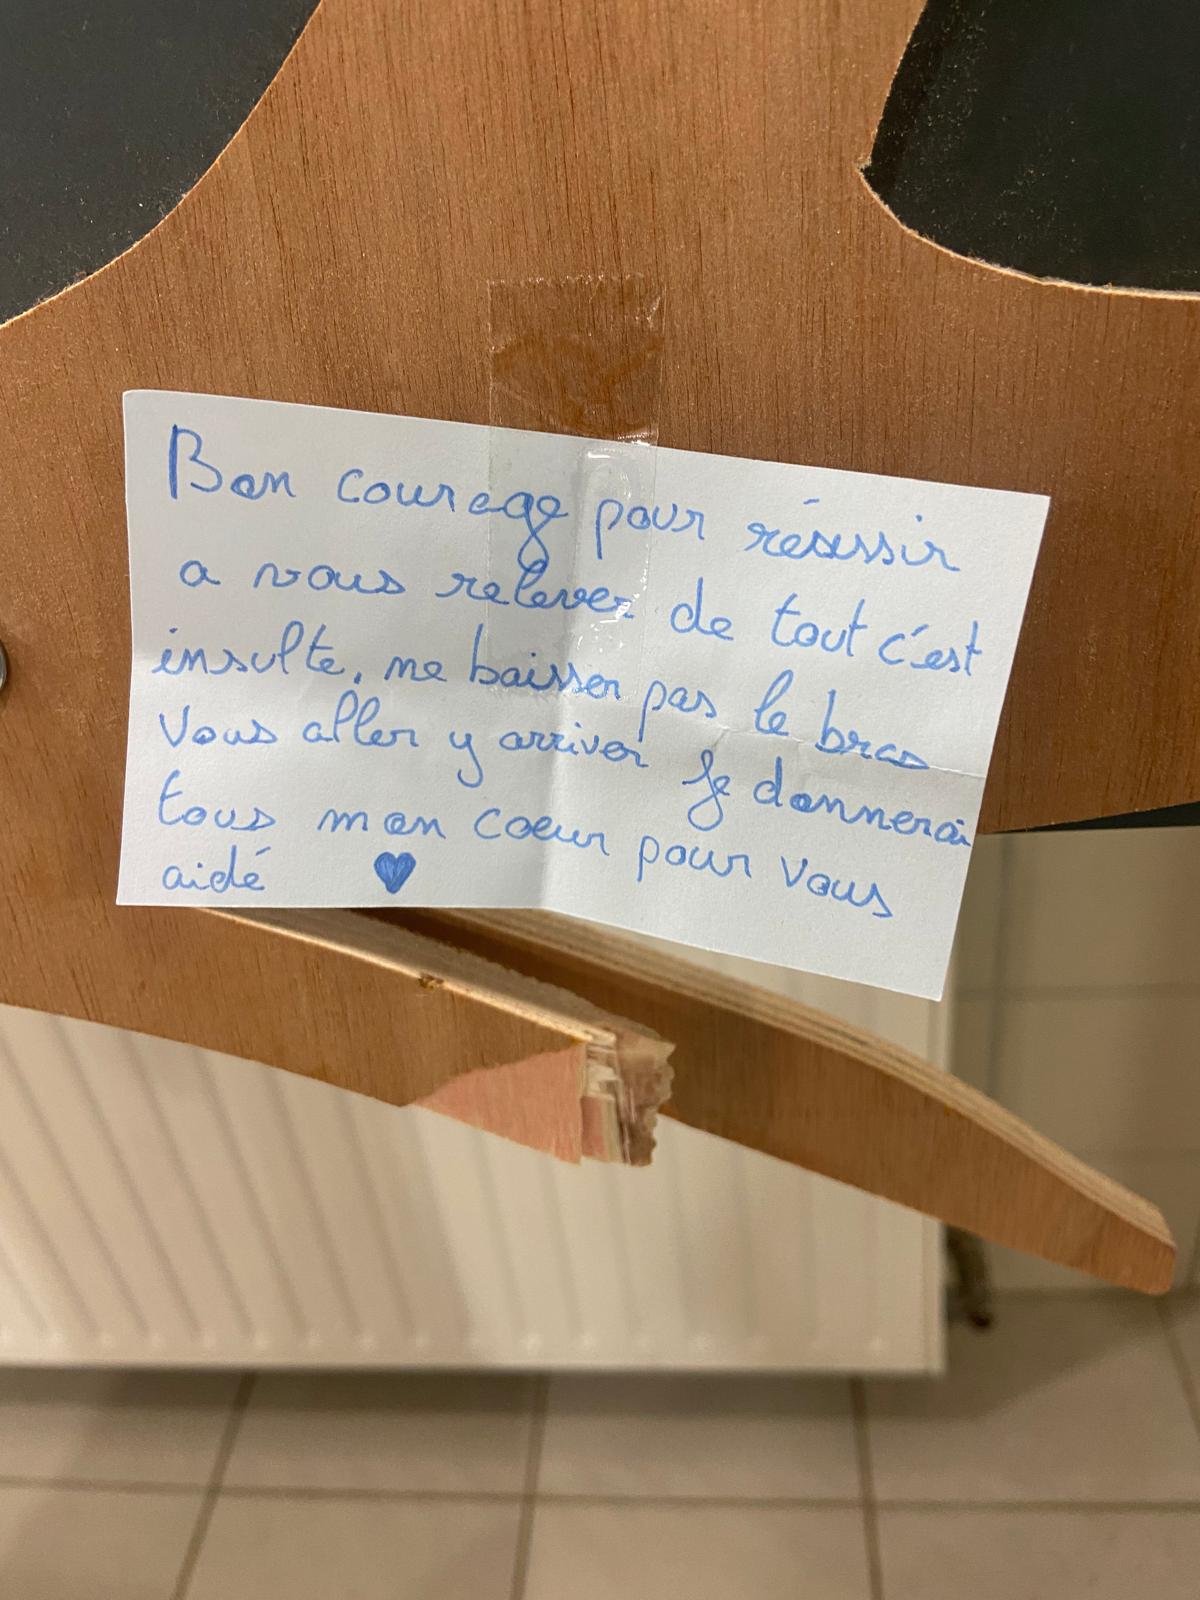 Bon courage pour réussir
a vous relever de tout c'est
insulte, ne baisser pas le bras
Vous aller y arriver Je donnerai
tous mon coeur pour vous
aidé